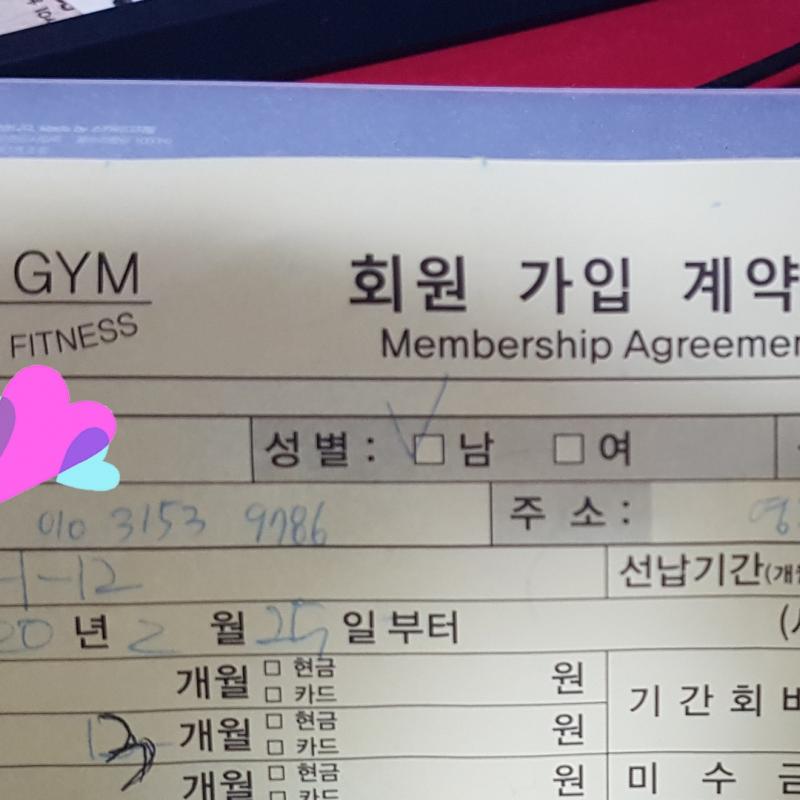 GYM
FITNESS
회원 가입 계약
Membership Agreemen
성별: □ 남 □ 여
010 3153 9786 주 소: 영
-1-12 선납기간(개월
20 년 2 월 25 일부터
개월 □ 현금 □ 카드 원 기간회비
개월 □ 현금 □ 카드 원
개월 □ 현금 □ 카드 원 미수금